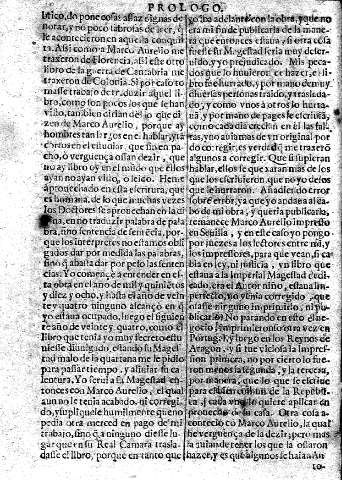 PROLOGO.
litico, do pone cosas assaz dignas de
notar, y no poco sabrosas de leer, q̃
le acontecieron en aquella conquis
ta. Assi como a Marco Aurelio me
traxeron de Florencia, assi este otro
libro de la guerra de Cantabria me
traxeron de Colonia. Si por caso to
masse trabajo de traduzir aquel li-
bro, como son pocos los que le han
visto, tambien dirian del lo que di
zen de Marco Aurelio, porque ay
hombres tan largos en el hablar, y tã
cortos en el estudiar, que sin em pa-
cho, o verguença osan dezir, que
no ay libro oy en el mũdo que ellos
no ayan visto, o leido. Heme
aprouechado en esta escritura, que
es humana, de lo que muchas vezes
los Doctores se aprouechan en la di
uina, en no traduzir palabra de pala
bra, sino sentencia de sentẽcia, por-
que los interpretes no estamos obli
gados dar por medida las palabras,
sino q̃ abasta dar por peso las senten
cias. Yo comence a entender en es-
ta obra en el año de mil y quinietos
y diez y ocho, y hasta el año de vein
te y quatro ninguno alcanço en q̃
yo estaua ocupado, luego el siguien
te año de veinte y quatro, como el
libro que tenia yo muy secreto estu
uiesse diuulgado, estando su Mages
tad malo de la quartana me le pidio
para passar tiempo, y aliuiar su ca-
lentura. Yo serui a su Magestad en
tonces con Marco Aurelio, el qual
aun no le tenia acabado, ni corregi-
do, y supliquele humilmente que no
pedia otra merced en pago de mi
trabajo, sino q̃ a ninguno diesse lu-
gar que en su Real Camara trasla-
dasse el libro, porque en tanto que
yo iua adelante con la obra, y que no
era mi fin de publicarla de la mane
ra que entonces estaua, y si esta cosa
fuesse el su Magestad seria muy deser-
uido, y yo perjudicado. Mis peca-
dos que lo huuieron de hazer, el li-
bro fue hurtado, y por manos de mu
diuersas personas traido, y traslada-
do, y como vnos a otros le hurta-
uã, y por mano de pages le escriuiã,
como cada dia crecian en el las fal-
tas, y no auia mas de vn original por
do corregir, es verdad q̃ me traxerõ
algunos a corregir. Que si supieran
hablar, ellos se quexaran mas de los
que los escriuieron, que no yo de los
que le hurtaron. Añadiendo error
sobre error, ya que yo andaua al ca-
bo de mi obra, y queria publicarla,
remanece Marco Aurelio impresso
en Seuilla, y en este caso yo pongo
por juezes a los lectores entre mi, y
los impressores, para que vean, si ca
bia en ley, ni justicia, vn libro que
estaua a la imperial Magestad dedi-
cado, era el Autor niño, estaua im-
perfecto, no venia corregido, que
osasse ninguno imprimirlo, ni pu-
blicarlo. No parando en esto el ne-
gocio imprimieronse otra vez en
Portugal, y luego en los Reynos de
Aragon. y si fue viciosa la impres-
sion primera, no por cierto lo fue-
ron menos la segunda, y la tercera,
por manera, que lo que se escriue
para el bien comun de la Republi-
ca, cada vno lo quiere aplicar en
prouecho de su casa. Otra cosa a-
contecio co Marco Aurelio, la qual
he verguença de la dezir; pero mas
la auian de tener los que la osaron
hazer, y es que algunos se haziã Au
to-